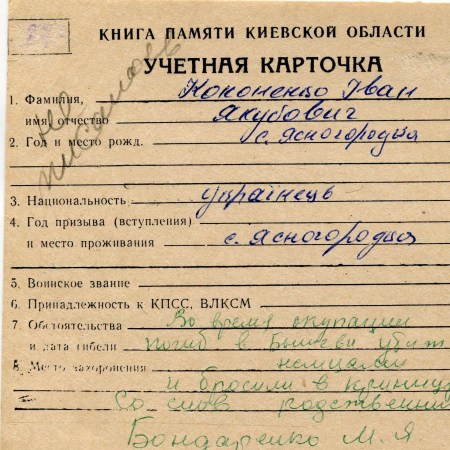 КНИГА ПАМЯТИ КИЕВСКОЙ ОБЛАСТИ
УЧЕТНАЯ КАРТОЧКА
1. Фамилия, Кононенко Іван
имя, отчество Якубович
2. Год и место рожд. с. Ясногородка
3. Национальность українець
4. Год призыва (вступления)
и место проживания с. Ясногородка
5. Воинское звание
6. Принадлежность к КПСС, ВЛКСМ
7. Обстоятельства Во время окупации
и дата гибели погиб в Бышеви убит
8. Место захоронения немцами
и бросили в криницу
Со слов родственни
Бондаренко М. Я